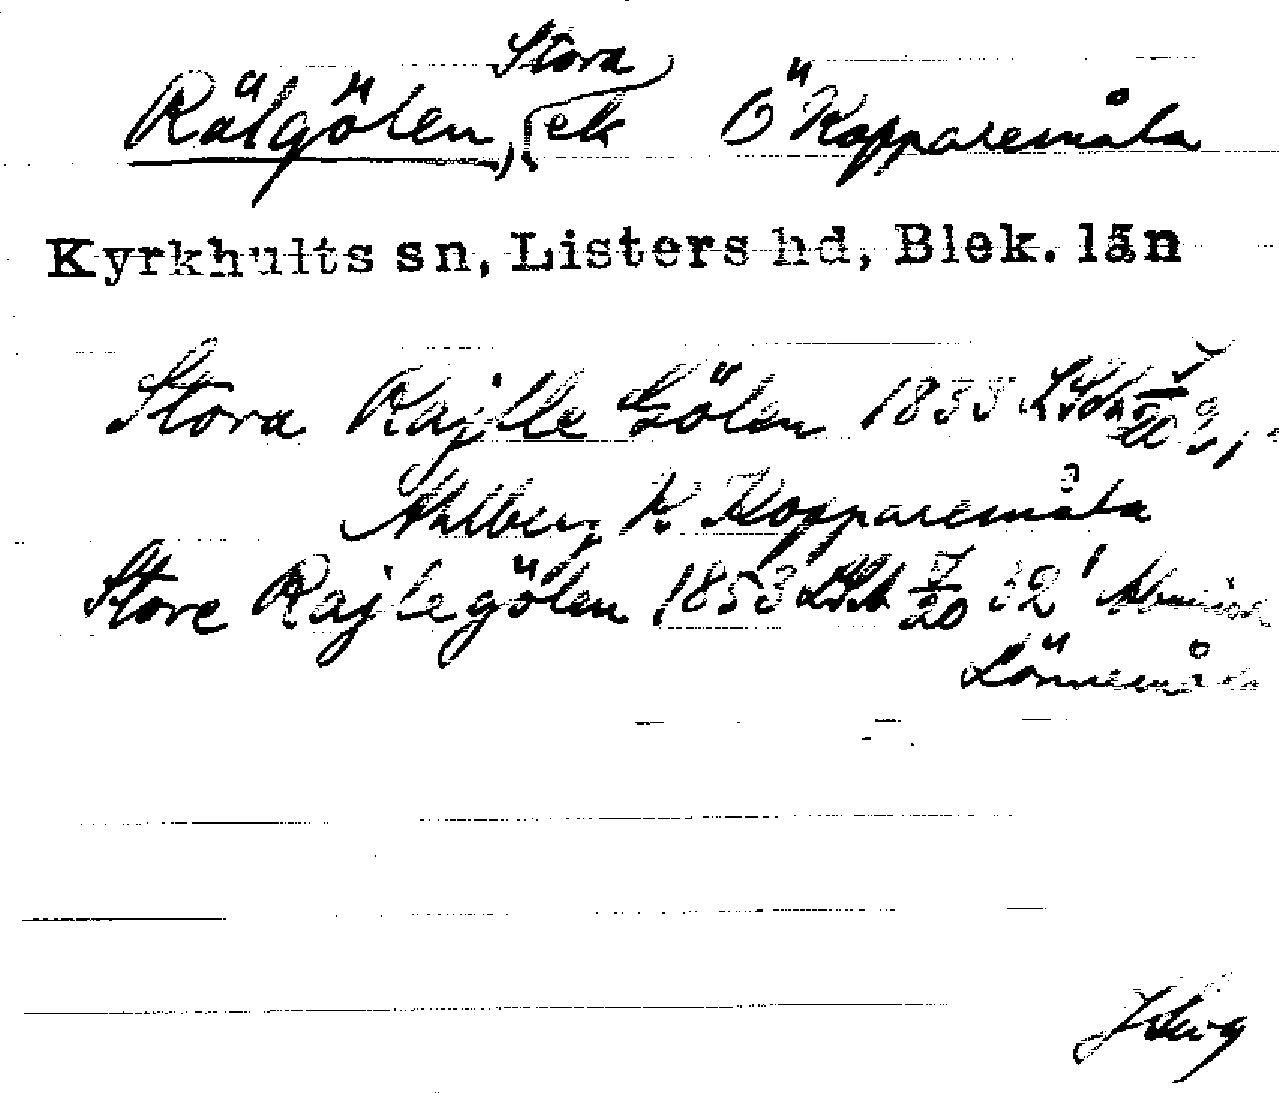 Rälgölen, Stora ek Ö Kopparemåla
Kyrkhults sn, Listers hd, Blek. län
Stora Rajlle Gölen 1835
Ahlberg K. Kopparemåla
Store Rajlegölen 1853 LSA 7/20 32'
Lönnemåla